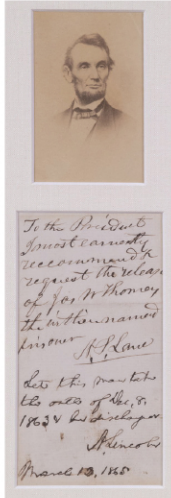 To the President
I most earnestly
recommend &
request the release
of Jas W
the within named
prisoner
H. S. Lane
Let this man take
the oath of Dec. 8,
1863 & be discharged
A. Lincoln
March 13, 1865